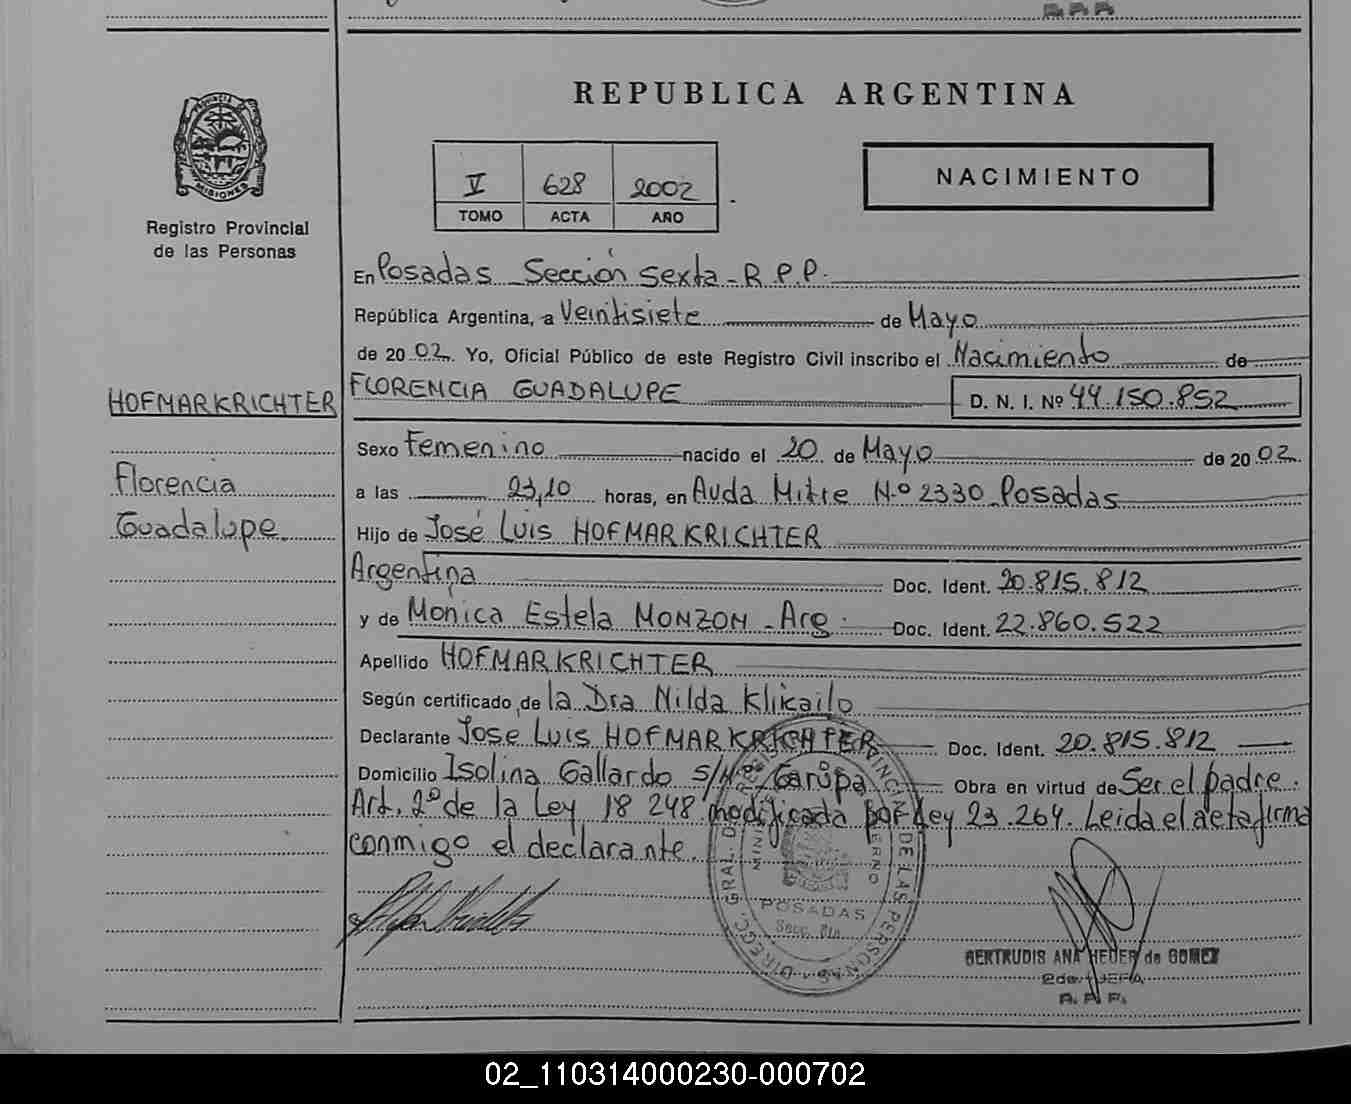 R.P.P.
PROVINCIA DE
MISIONES
Registro Provincial
de las Personas
HOFMARKRICHTER
Florencia
Guadalupe.
REPUBLICA ARGENTINA
V 628 2002
TOMO ACTA AÑO
NACIMIENTO
En Posadas - Sección Sexta - R.P.P.
República Argentina, a Veintisiete de Mayo
de 20 02. Yo, Oficial Público de este Registro Civil inscribo el Nacimiento de
FLORENCIA GUADALUPE D. N. I. Nº 44.150.852
Sexo Femenino nacido el 20 de Mayo de 20 02
a las 23,10 horas, en Avda Mitre N.º 2330 Posadas
Hijo de José Luis HOFMARKRICHTER
Argentina Doc. Ident. 20.815.812
y de Mónica Estela MONZON - Arg. Doc. Ident. 22.860.522
Apellido HOFMARKRICHTER
Según certificado de la Dra Nilda Klikailo
Declarante Jose Luis HOFMARKRICHTER Doc. Ident. 20.815.812
Domicilio Isolina Gallardo s/Nº Garupa Obra en virtud de Ser el padre.
Art. 2º de la Ley 18 248 modificada por Ley 23.264. Leida el acta firma
conmigo el declarante.
DIRECC. GRAL. DE REG. PROVINCIAL DE LAS PERSONAS
POSADAS
GERTRUDIS ANA HEUER de GOMEZ
2da. JEFA
R. P. P.
02_110314000230-000702